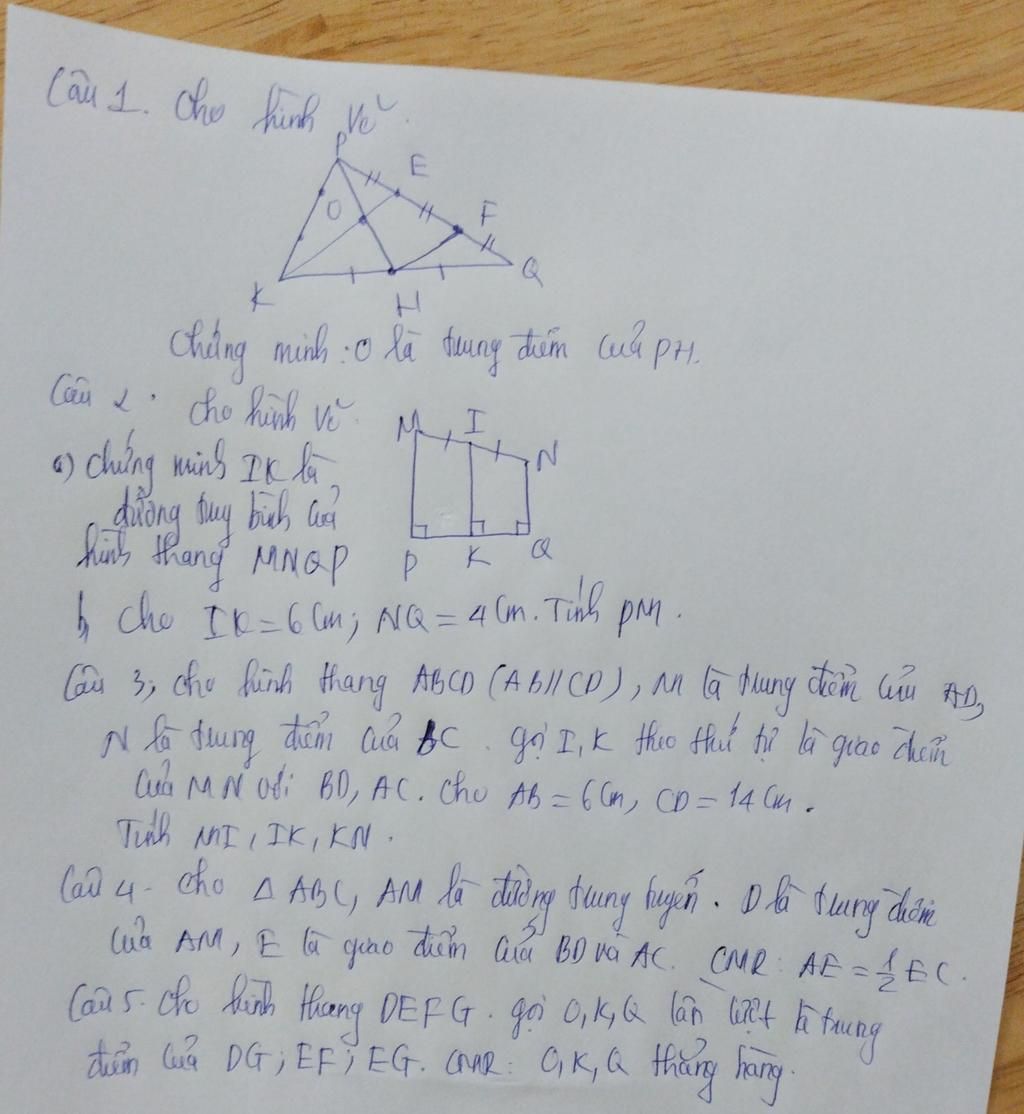 Câu 1. Cho hình vẽ.
P
E
O
F
K
H
Q
Chứng minh: O là trung điểm của PH.
Câu 2. Cho hình vẽ
M I N
a) chứng minh IK là
đường trung bình của
hình thang MNQP
P K Q
b, Cho IK = 6 Cm; NQ = 4 Cm. Tính PM.
Câu 3; cho hình thang ABCD (AB//CD), M là trung điểm của AD,
N là trung điểm của BC. gọi I, K theo thứ tự là giao điểm
của MN với BD, AC. Cho AB = 6 Cm, CD = 14 Cm.
Tính MI, IK, KN.
Câu 4. Cho Δ ABC, AM là đường trung tuyến. D là trung điểm
của AM, E là giao điểm của BD và AC. CMR: AE = 1/2 EC.
Câu 5. Cho hình thang DEFG. gọi O, K, Q lần lượt là trung
điểm của DG; EF; EG. CMR: O, K, Q thẳng hàng.